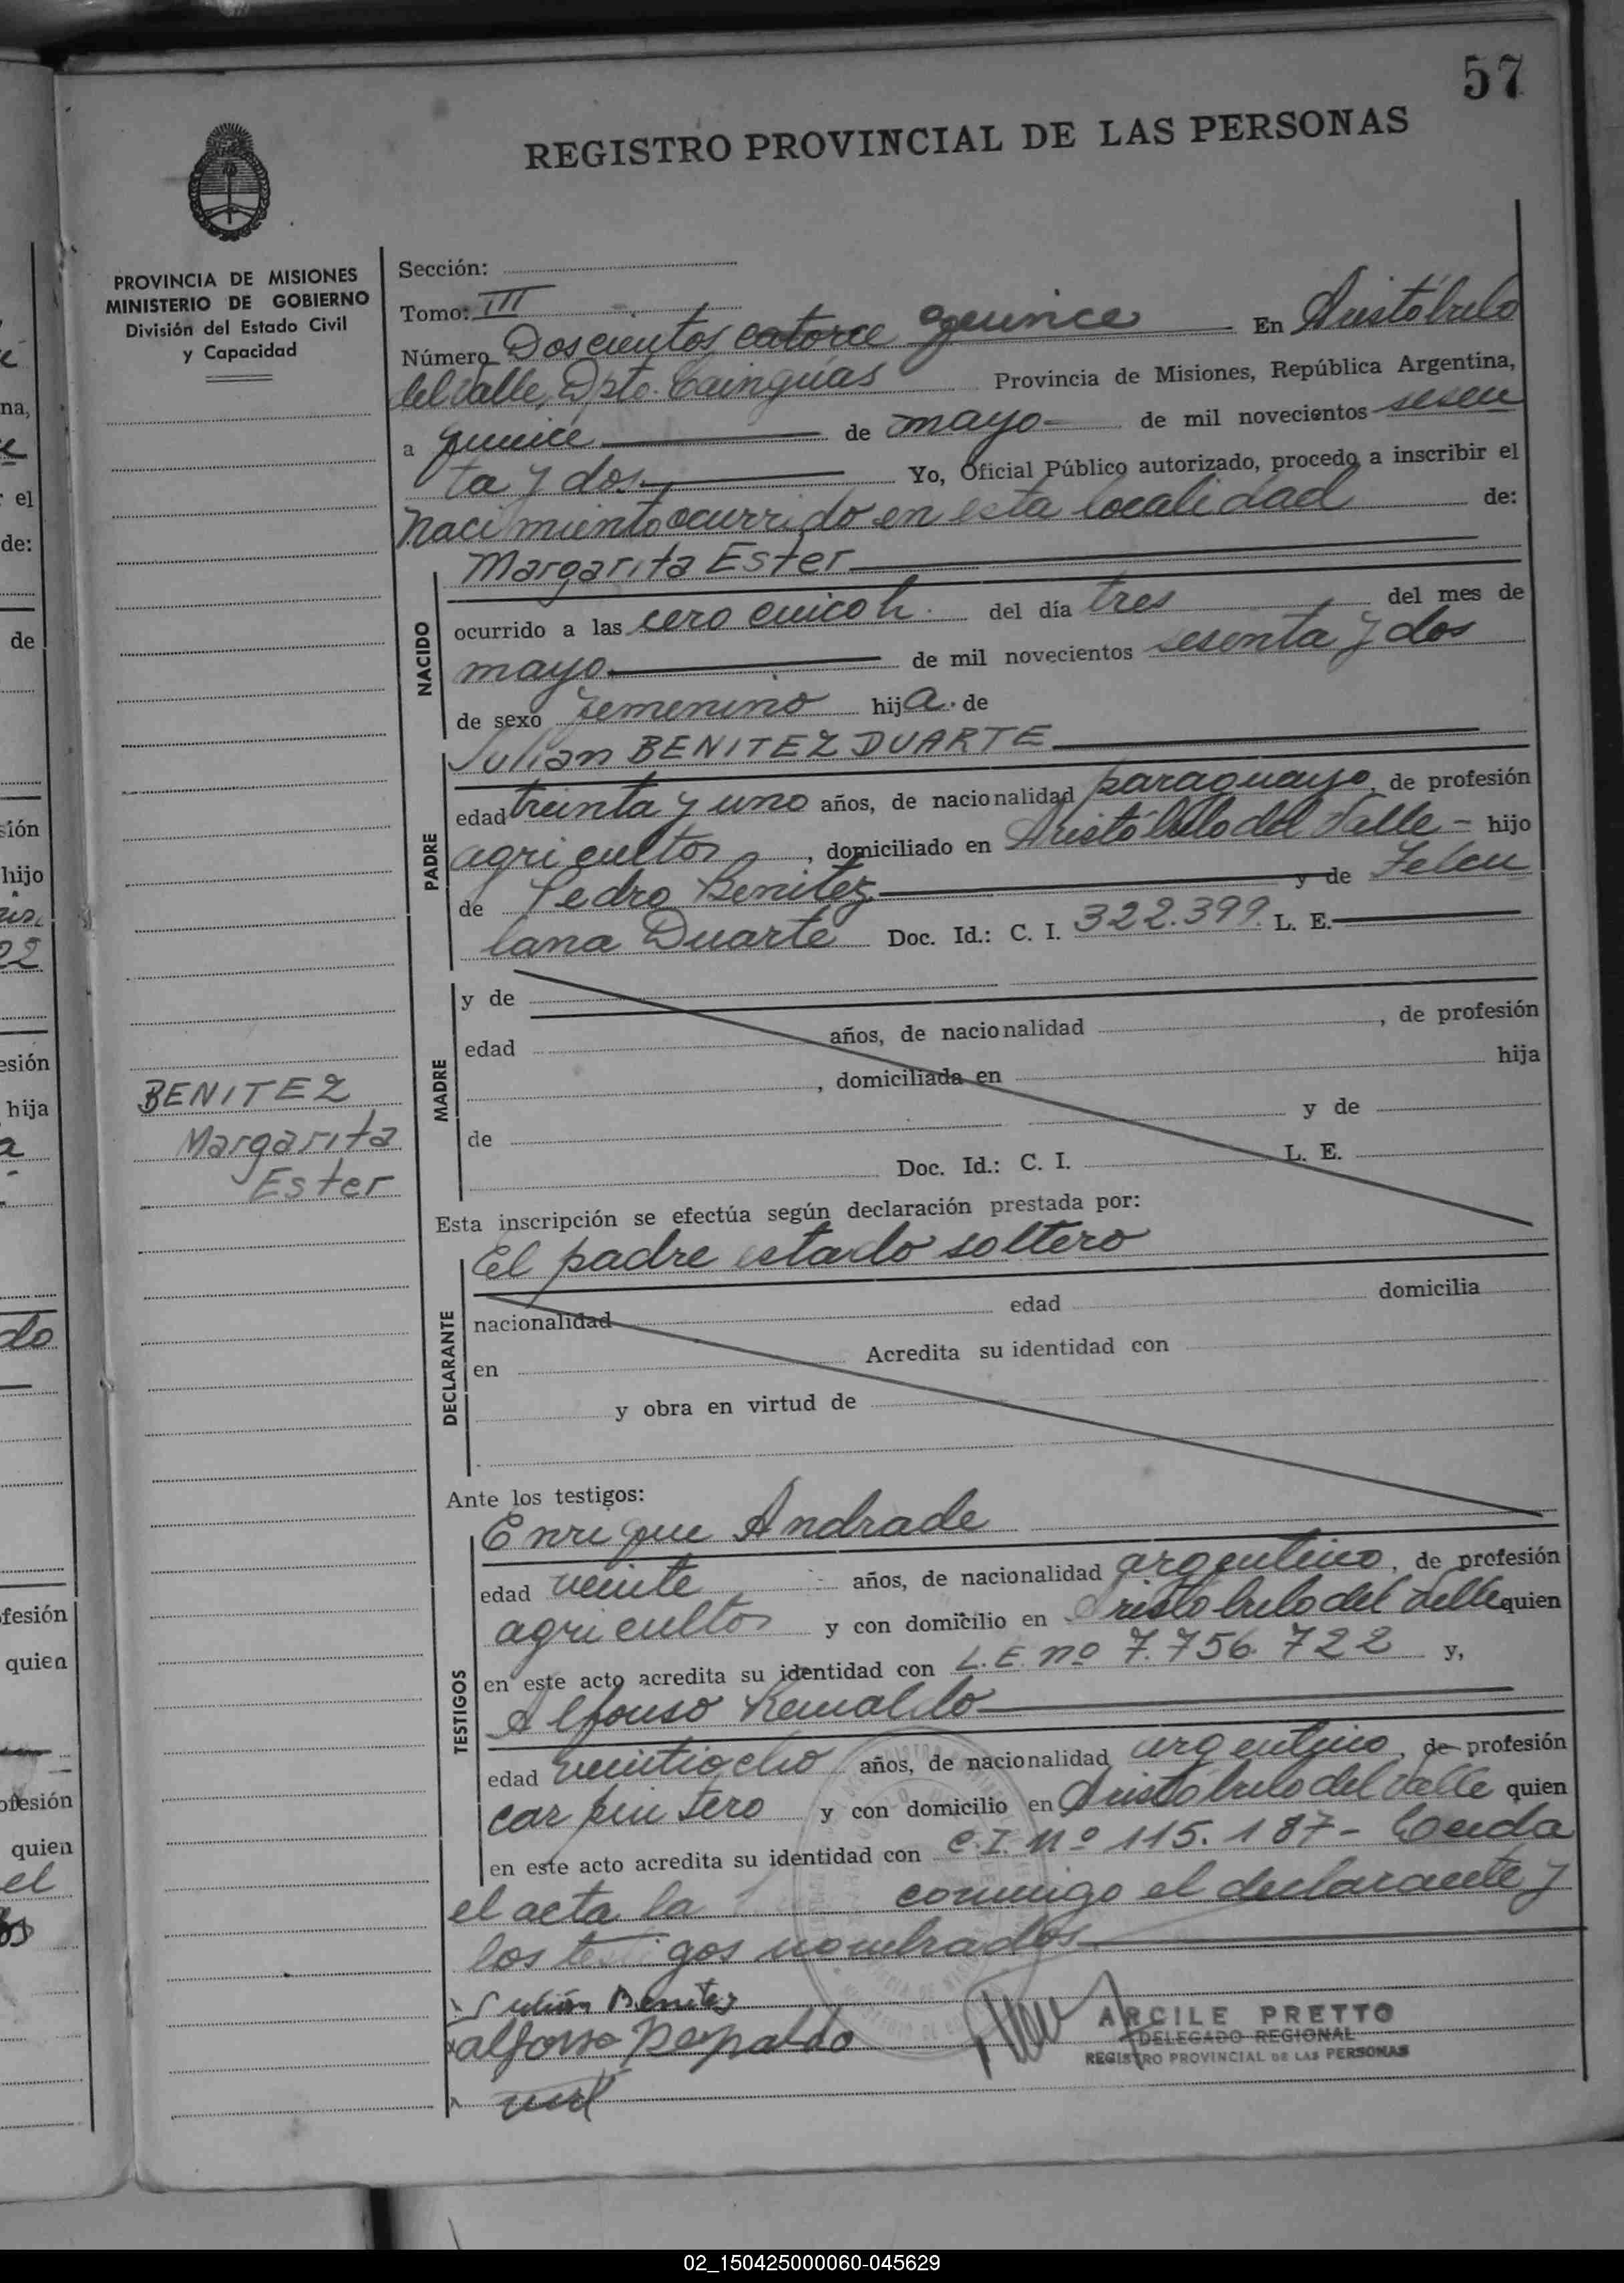 57
REGISTRO PROVINCIAL DE LAS PERSONAS
PROVINCIA DE MISIONES
MINISTERIO DE GOBIERNO
División del Estado Civil
y Capacidad
Sección:
Tomo: III
Número Doscientos catorce quince En Aristóbulo
del Valle, Dpto. Cainguas Provincia de Misiones, República Argentina,
a quince de mayo de mil novecientos sesen
ta y dos Yo, Oficial Público autorizado, procedo a inscribir el
nacimiento ocurrido en esta localidad de:
NACIDO
Margarita Ester
ocurrido a las cero cinco h. del día tres del mes de
mayo de mil novecientos sesenta y dos
de sexo femenino hija. de
PADRE
Julian BENITEZ DUARTE
edad treinta y uno años, de nacionalidad paraguayo, de profesión
agricultor, domiciliado en Aristóbulo del Valle - hijo
de Pedro Benitez y de Felici
lana Duarte Doc. Id.: C. I. 322.399. L. E.
MADRE
y de
edad años, de nacionalidad , de profesión
, domiciliada en hija
de y de
Doc. Id.: C. I. L. E.
BENITEZ
Margarita
Ester
Esta inscripción se efectúa según declaración prestada por:
DECLARANTE
El padre estado soltero
nacionalidad edad domicilia
en Acredita su identidad con
y obra en virtud de
Ante los testigos:
TESTIGOS
Enrique Andrade
edad veinte años, de nacionalidad argentino, de profesión
agricultor y con domicilio en Aristobulo del Valle quien
en este acto acredita su identidad con L.E. nº 7.756.722 y,
Alfonso Reinaldo
edad veintiocho años, de nacionalidad argentino, de profesión
carpintero y con domicilio en Aristóbulo del Valle quien
en este acto acredita su identidad con C.I. Nº 115.187- Leida
el acta la conmigo el declarante y
los testigos nombrados
Julián Benitez
alfonso Reynaldo
ARCILE PRETTO
DELEGADO REGIONAL
REGISTRO PROVINCIAL DE LAS PERSONAS
02_150425000060-045629